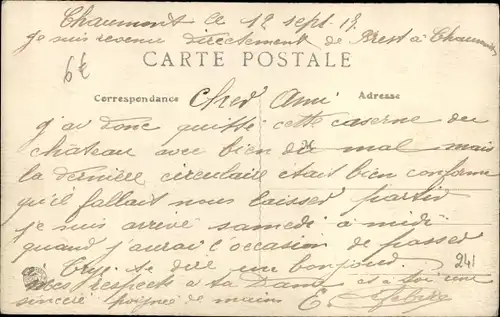 Chaumont le 12 sept. 18.
je suis revenu directement de Brest à Chaumont
6€
CARTE POSTALE
Correspondance Adresse
Cher Ami
j'ai donc quitté cette caserne du
château avec bien du mal mais
la dernière circulaire était bien conforme
qu'il fallait nous laisser partir
je suis arrivé samedi à midi
quand j'aurai l'occasion de passer
à te dire un bonjour. 241
mes respects à ta Dame et à toi une
sincère poignée de mains E.